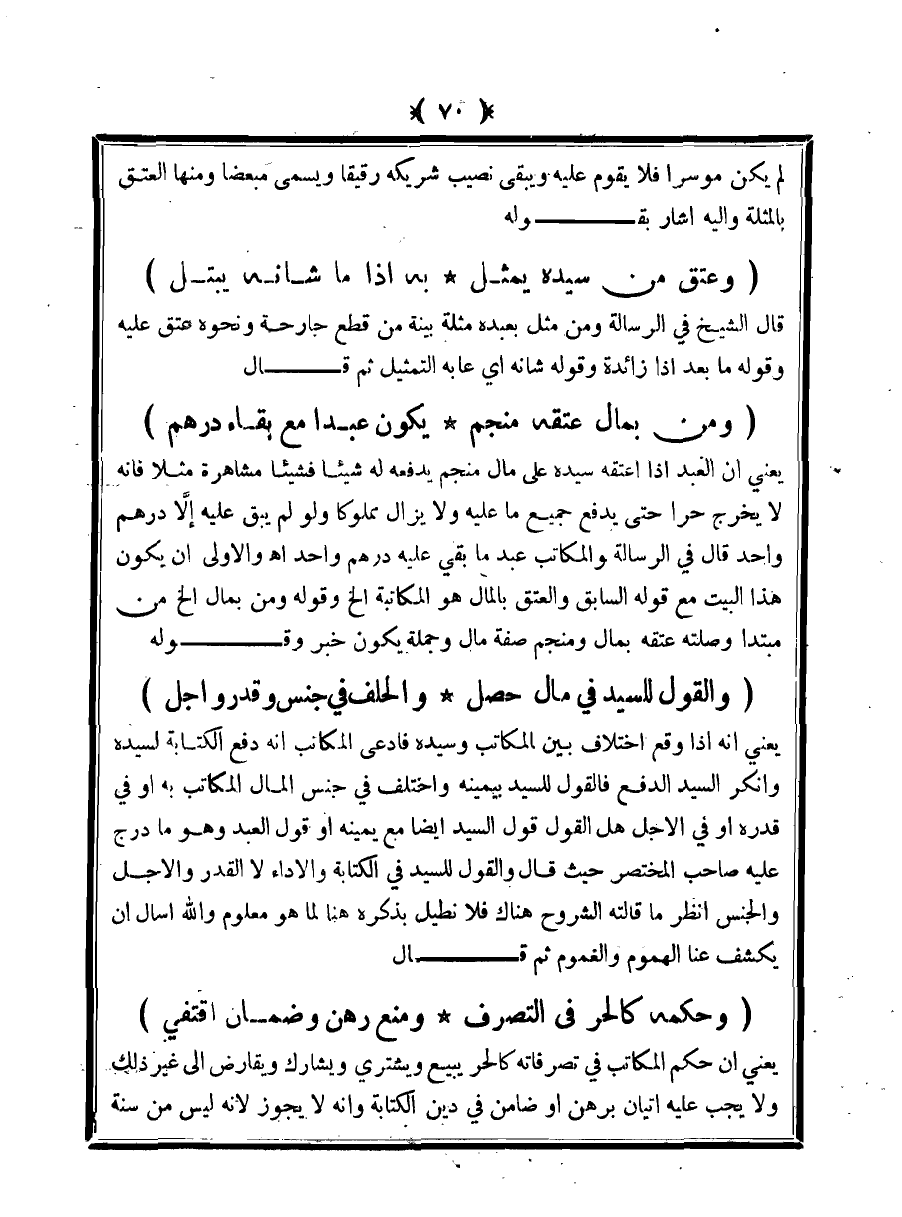 ﴿ ٧٠ ﴾
لم يكن موسرا فلا يقوم عليه ويبقى نصيب شريكه رقيقا ويسمى مبعضا ومنها العتق
بالمثلة واليه اشار بقـــــوله
( وعتق من سيده يمثـل * به اذا ما شانـه يبتـل )
قال الشيخ في الرسالة ومن مثل بعبده مثلة بينة من قطع جارحة ونحوه عتق عليه
وقوله ما بعد اذا زائدة وقوله شانه اي عابه التمثيل ثم قـــــال
( ومن بمال عتقه منجم * يكون عبـدا مع بقـاء درهم )
يعني ان العبد اذا اعتقه سيده على مال منجم يدفعه له شيئا فشيئا مشاهرة مثـلا فانه
لا يخرج حرا حتى يدفع جميع ما عليه ولا يزال مملوكا ولو لم يبق عليه إلَّا درهم
واحد قال في الرسالة والمكاتب عبد ما بقي عليه درهم واحد اه والاولى ان يكون
هذا البيت مع قوله السابق والعتق بالمال هو المكاتبة الخ وقوله ومن بمال الخ من
مبتدا وصلته عتقه بمال ومنجم صفة مال وجملة يكون خبر وقـــــوله
( والقول للسيد في مال حصل * والخلف في جنس وقدر واجل )
يعني انه اذا وقع اختلاف بين المكاتب وسيده فادعى المكاتب انه دفع الكتابة لسيده
وانكر السيد الدفع فالقول للسيد بيمينه واختلف في جنس المال المكاتب به او في
قدره او في الاجل هل القول قول السيد ايضا مع يمينه او قول العبد وهو ما درج
عليه صاحب المختصر حيث قال والقول للسيد في الكتابة والاداء لا القدر والاجل
والجنس انظر ما قالته الشروح هناك فلا نطيل بذكره هنا لما هو معلوم والله اسال ان
يكشف عنا الهموم والغموم ثم قـــــال
( وحكمه كالحر في التصرف * ومنع رهن وضمـان اقتفي )
يعني ان حكم المكاتب في تصرفاته كالحر يبيع ويشتري ويشارك ويقارض الى غير ذلك
ولا يجب عليه اتيان برهن او ضامن في دين الكتابة وانه لا يجوز لانه ليس من سنة